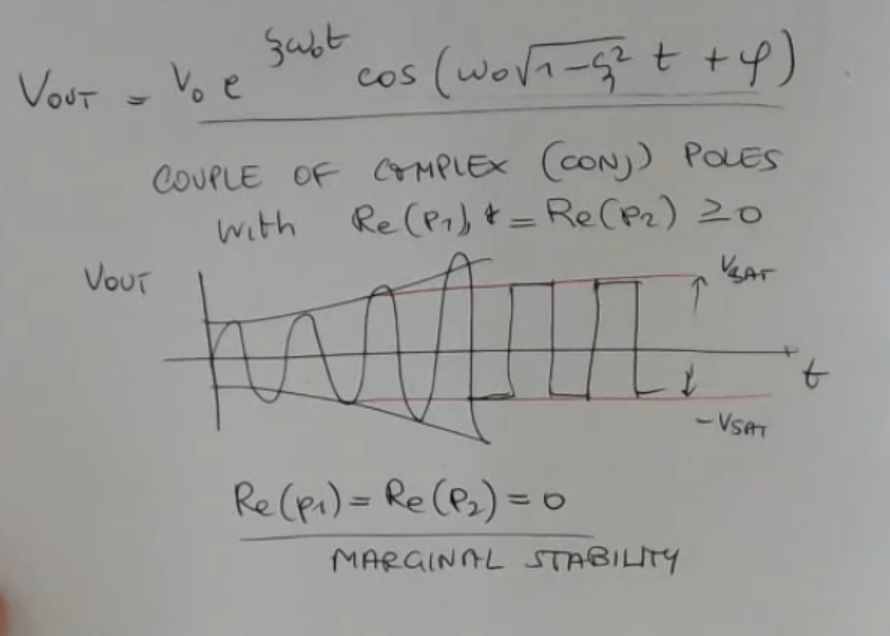 VOUT = V₀ e^ξω₀t cos (ω₀√1-ξ² t + φ)
COUPLE OF COMPLEX (CONJ) POLES
with Re(P₁) = Re(P₂) ≥ 0
VOUT
VSAT
t
-VSAT
Re(P₁) = Re(P₂) = 0
MARGINAL STABILITY